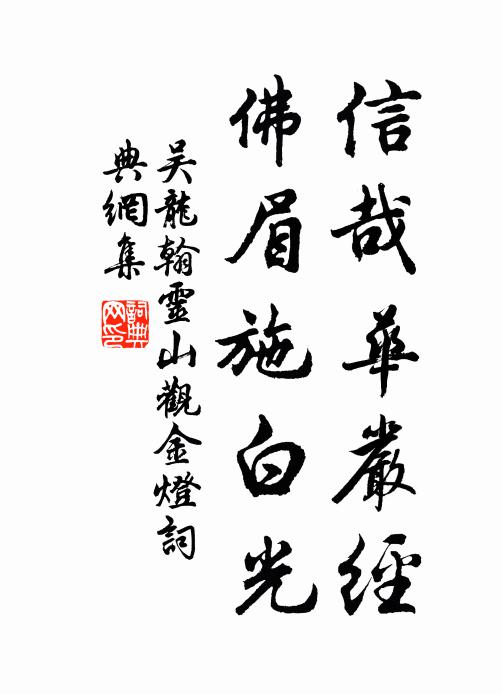 信哉華嚴經
佛眉施白光
吳龍翰靈山觀金燈詞
典網集
詞典網印